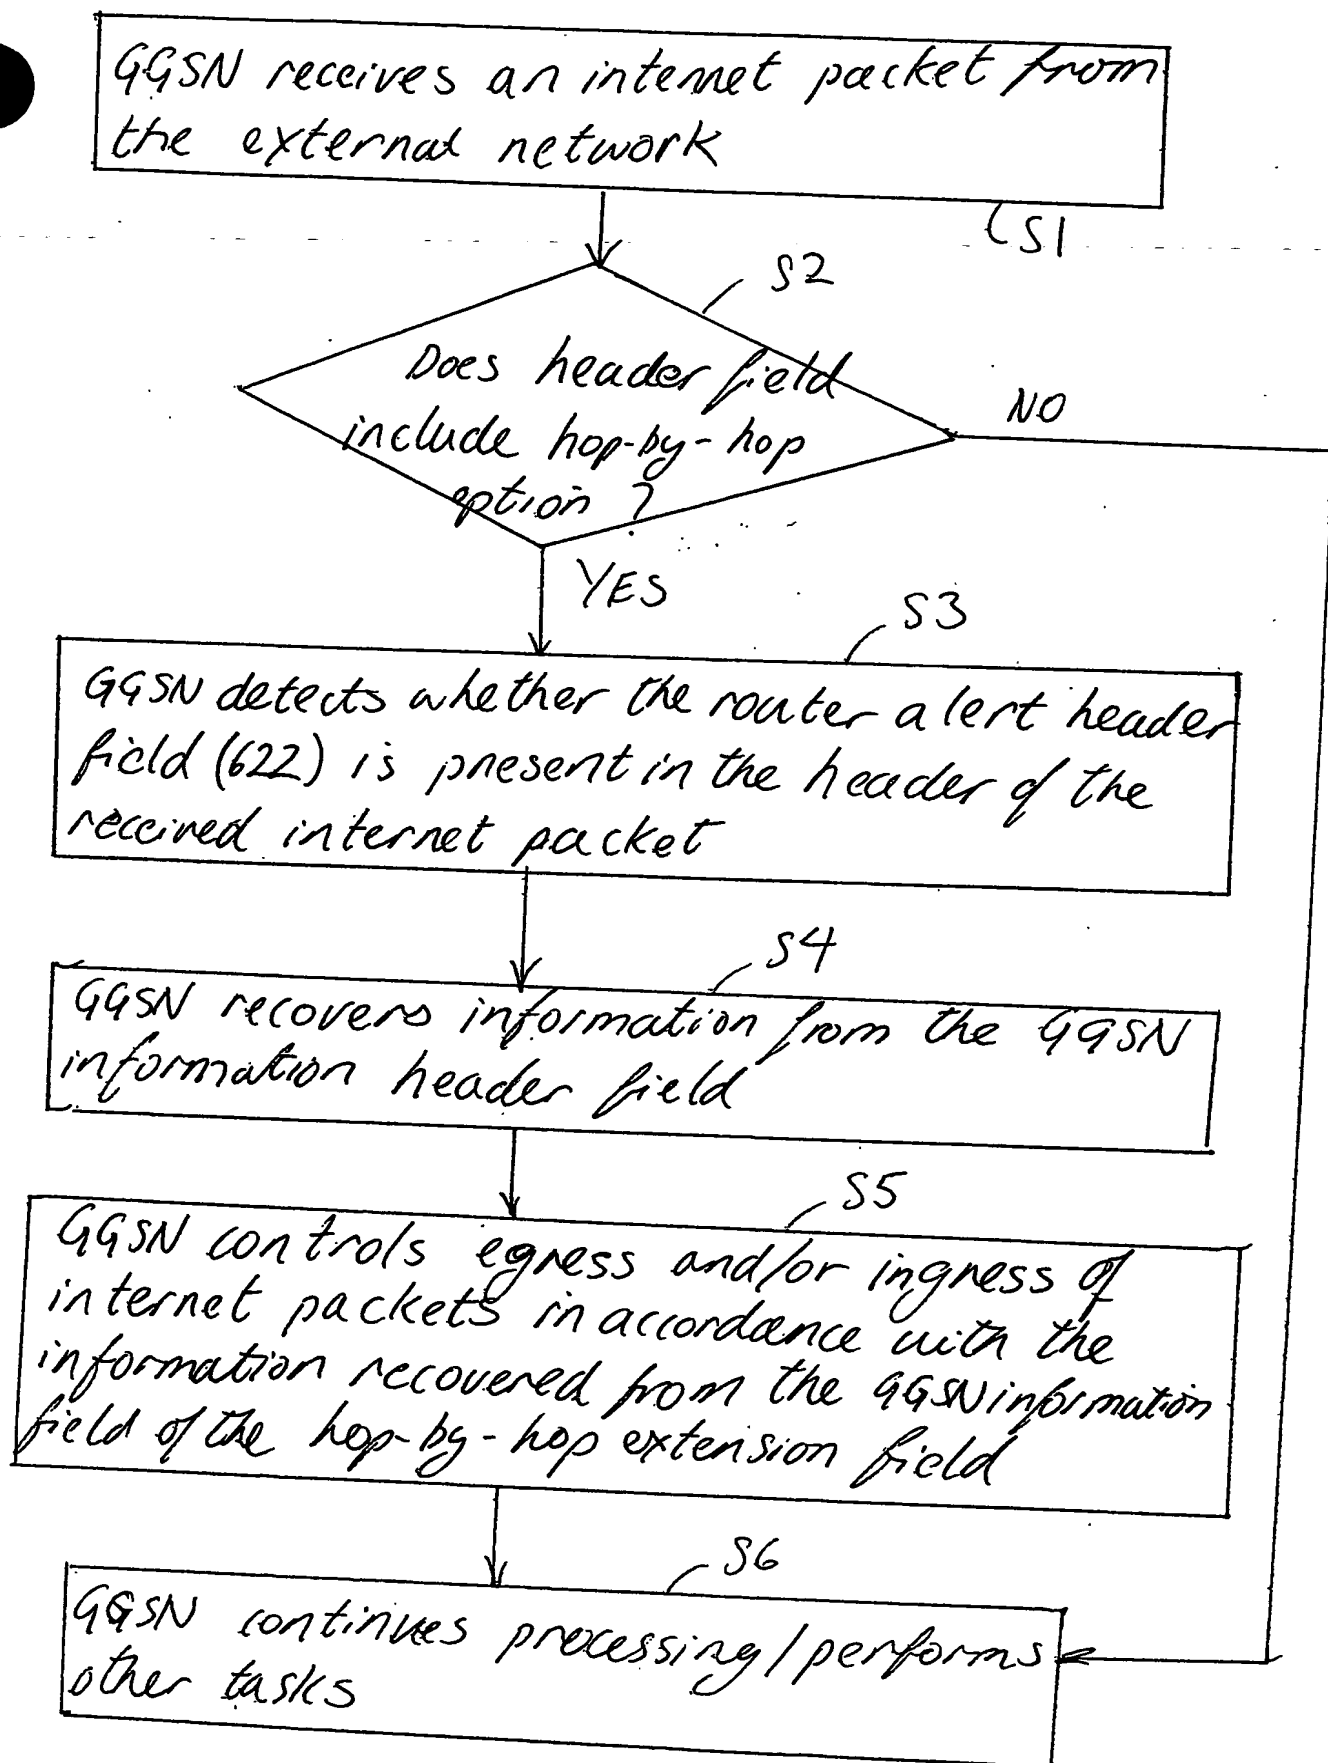 GGSN receives an internet packet from
the external network
S1
S2
Does header field
include hop-by-hop
option ?
NO
YES
S3
GGSN detects whether the router alert header
field (622) is present in the header of the
received internet packet
S4
GGSN recovers information from the GGSN
information header field
S5
GGSN controls egress and/or ingress of
internet packets in accordance with the
information recovered from the GGSN information
field of the hop-by-hop extension field
S6
GGSN continues processing/performs
other tasks